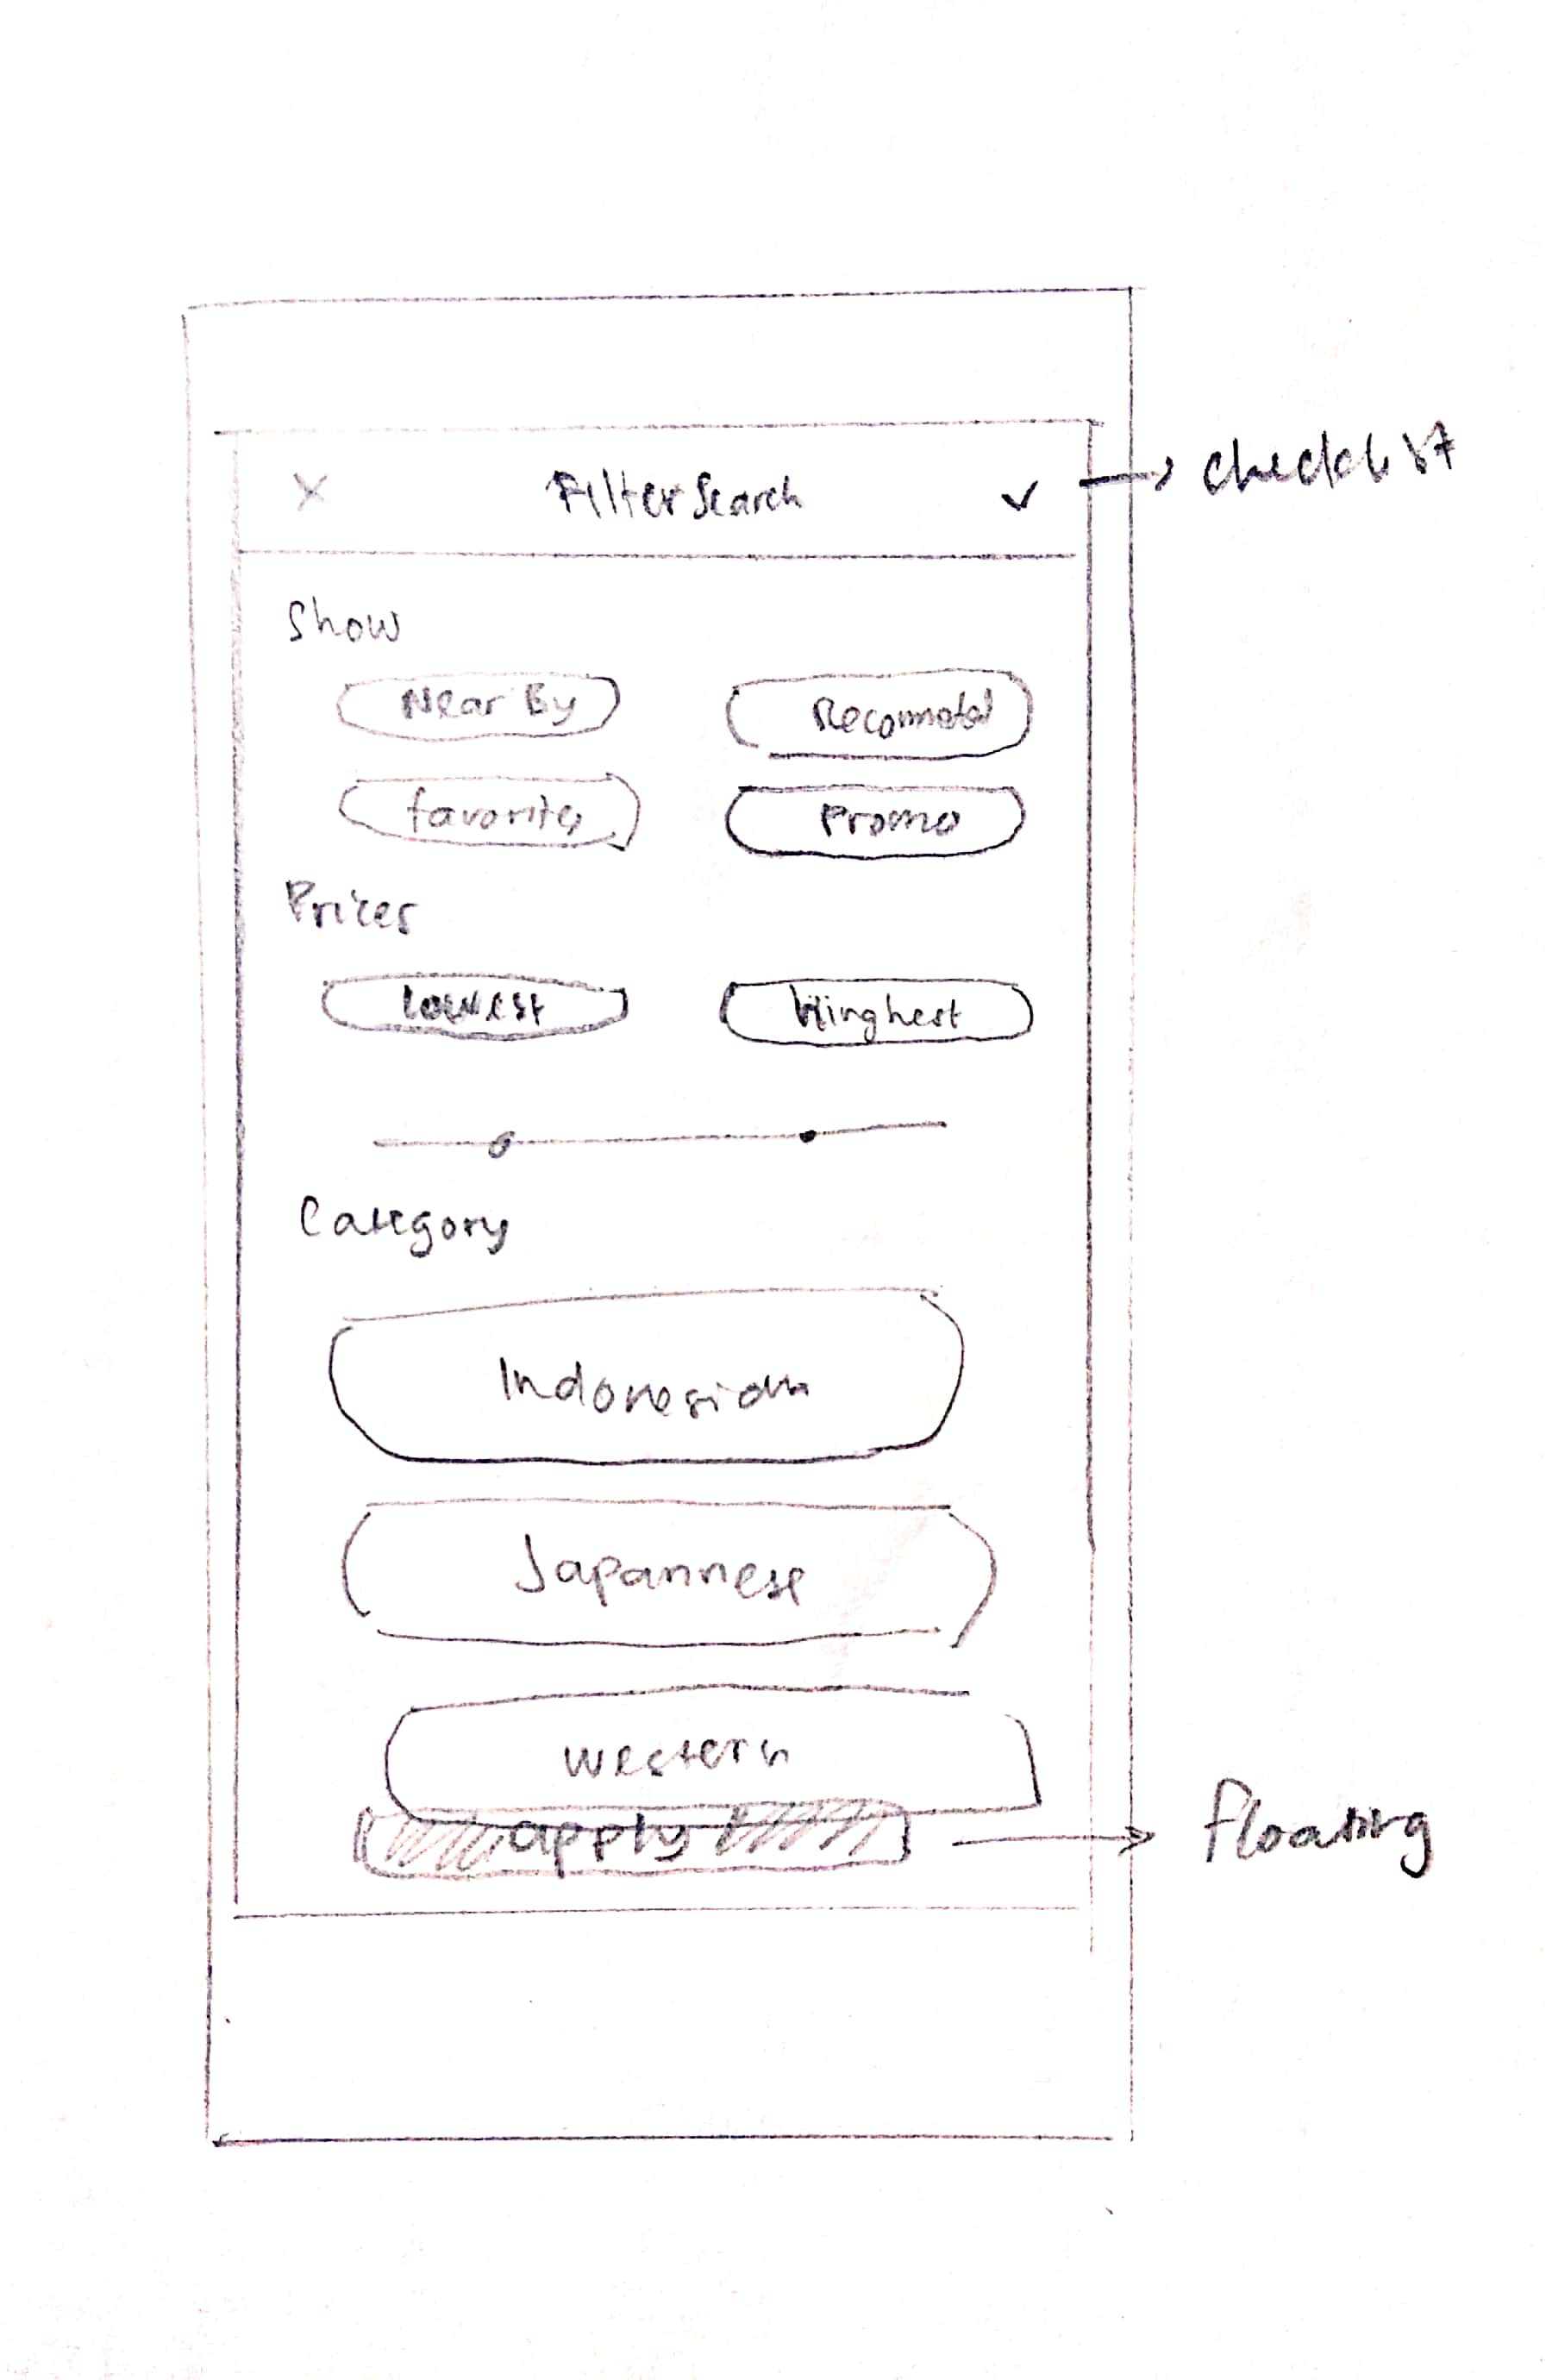 X Filter Search ✓ → checklist
Show
Near By
favorites Promo
Prices
lowest Hinghest
Category
Indonesian
Japannese
Western
apply → floating